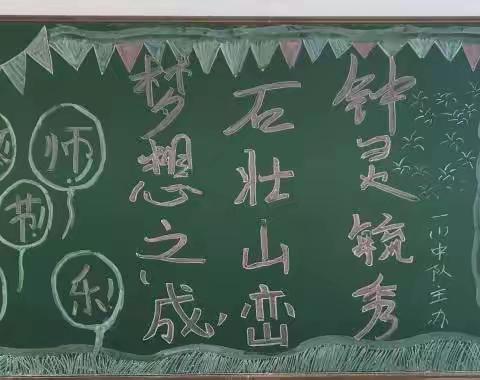 钟灵毓秀
一(1)中队主办
石壮山峦
梦想之成
师
节
乐